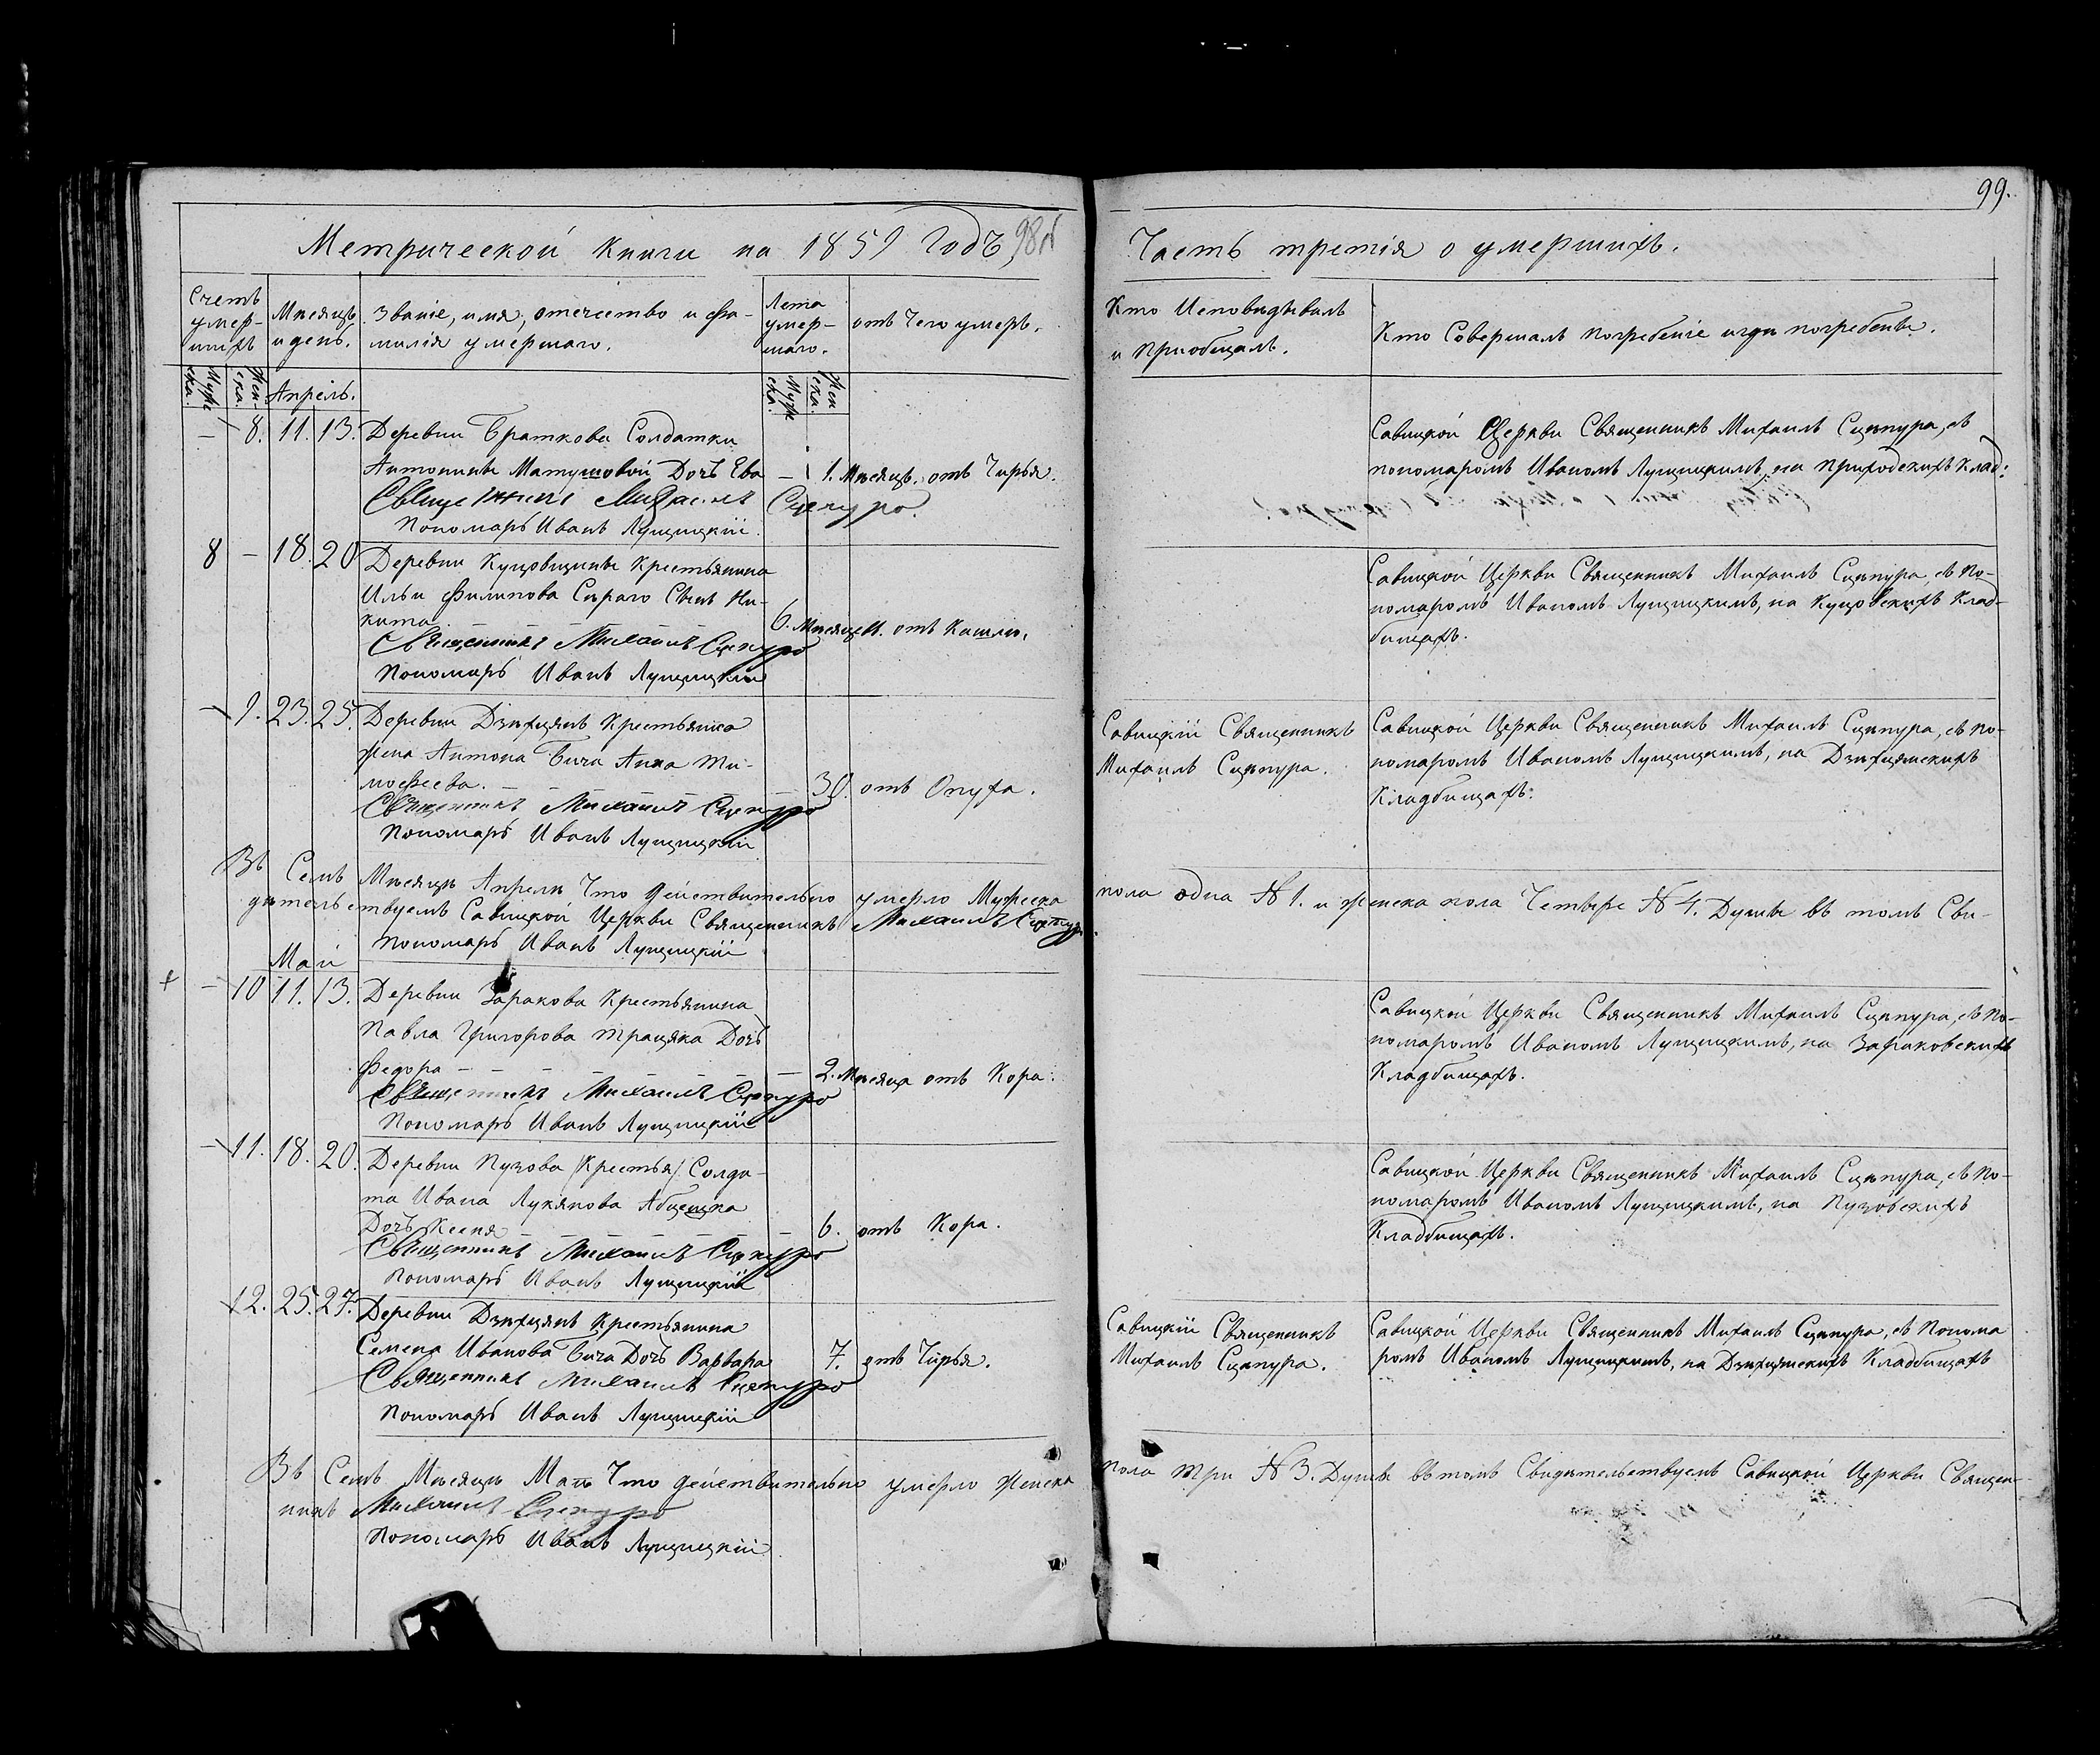 99.
Метрической книги на 1859 Годъ,
Часть третія о умершихъ.
Счетъ умер-шихъ
Мѣсяцъ и день.
Званіе, имя, отечество и фа-
милія умершаго.
Лета умер-шаго.
отъ Чего умеръ.
Кто Исповѣдывалъ
и Пріобщалъ.
Кто Совершалъ погребеніе и гдѣ погребены.
Муже ска.
Жен-ска.
Апрѣль.
Муже ска.
Жен ска.
— 8. 11. 13. Деревни Браткова Солдатки
Антонины Матушовой Дочь Ева — 1. Мѣсяцъ. отъ Чирья.
Священникъ Михаилъ Сцепуро.
Пономарь Иванъ Лущицкій.
Савицкой Церкви Священникъ Михаилъ Сцѣпура, съ
пономаромъ Иваномъ Лущицкимъ, на Приходскихъ Клад:
8 — 18. 20 Деревни Куцовщины Крестьянина
Ильи Филипова Сѣраго Сынъ Ни-
кита. 6. Мѣсяцей. отъ Кашлю.
Священникъ Михаилъ Сцепуро
Пономарь Иванъ Лущицкій
Савицкой Церкви Священникъ Михаилъ Сцѣпура, съ По-
номаромъ Иваномъ Лущицкимъ, на Куцовскихъ Клад-
бищахъ.
— 9. 23. 25. Деревни Дзѣхцянъ Крестьянка
жена Антона Бича Анна Ти-
мофеева. — — — — — 30. отъ Опуха.
Священникъ Михаилъ Сцепуро
Пономарь Иванъ Лущицкій
Савицкій Священникъ
Михаилъ Сцѣпура.
Савицкой Церкви Священникъ Михаилъ Сцѣпура, съ По-
номаромъ Иваномъ Лущицкимъ, на Дзѣхцянскихъ
Кладбищахъ.
Въ Семъ Мѣсяцѣ Апрелѣ Что дѣйствительно умерло Мужеска пола одна № 1. и женска пола Четыре № 4. Душы въ томъ Сви-
дѣтельствуемъ Савицкой Церкви Священникъ Михаилъ Сцепуро
Пономарь Иванъ Лущицкій
Май
— 10 11. 13. Деревни Заракова Крестьянина
Павла Григорова Трацяка Дочь
Федора — — — — — — 2. Мѣсяца отъ Кора.
Священникъ Михаилъ Сцепуро
Пономарь Иванъ Лущицкій
Савицкой Церкви Священникъ Михаилъ Сцѣпура, съ По-
номаромъ Иваномъ Лущицкимъ, на Зараковскихъ
Кладбищахъ.
— 11. 18. 20. Деревни Пузова /Крестья/ Солда-
та Ивана Лукянова Абцешка
Дочь Ксеня — — — — — 6. отъ Кора.
Священникъ Михаилъ Сцепуро
Пономарь Иванъ Лущицкій
Савицкой Церкви Священникъ Михаилъ Сцѣпура, съ По-
номаромъ Иваномъ Лущицкимъ, на Пузовскихъ
Кладбищахъ.
12. 25. 27. Деревни Дзѣхцянъ Крестьянина
Семена Иванова Бича Дочь Варвара 7. отъ Чирья.
Священникъ Михаилъ Сцепуро
Пономарь Иванъ Лущицкій
Савицкій Священникъ
Михаилъ Сцѣпура.
Савицкой Церкви Священникъ Михаилъ Сцѣпура, съ Понома
ромъ Иваномъ Лущицкимъ, на Дзѣхцянскихъ Кладбищахъ
Въ Семъ Мѣсяцѣ Маѣ Что дѣйствительно умерло женска пола три № 3. Душы въ томъ Свидѣтельствуемъ Савицкой Церкви Священ-
никъ Михаилъ Сцепуро
Пономарь Иванъ Лущицкій